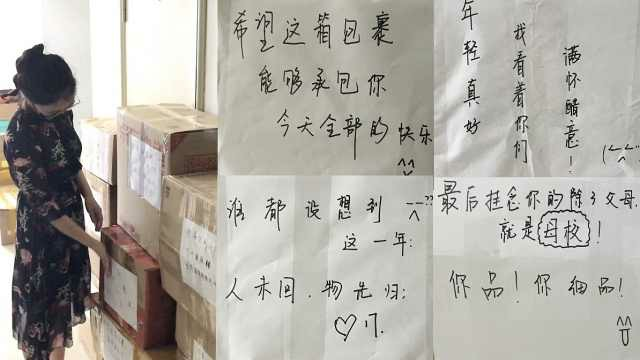 希望这箱包裹
能够承包你
今天全部的快乐
^^
年轻真好
我看着你们
满怀醋意!
谁都没想到
??
这一年:
人未回,物先归:
♡了.
最后挂念你的除了父母,
就是母校!
你品!你细品!